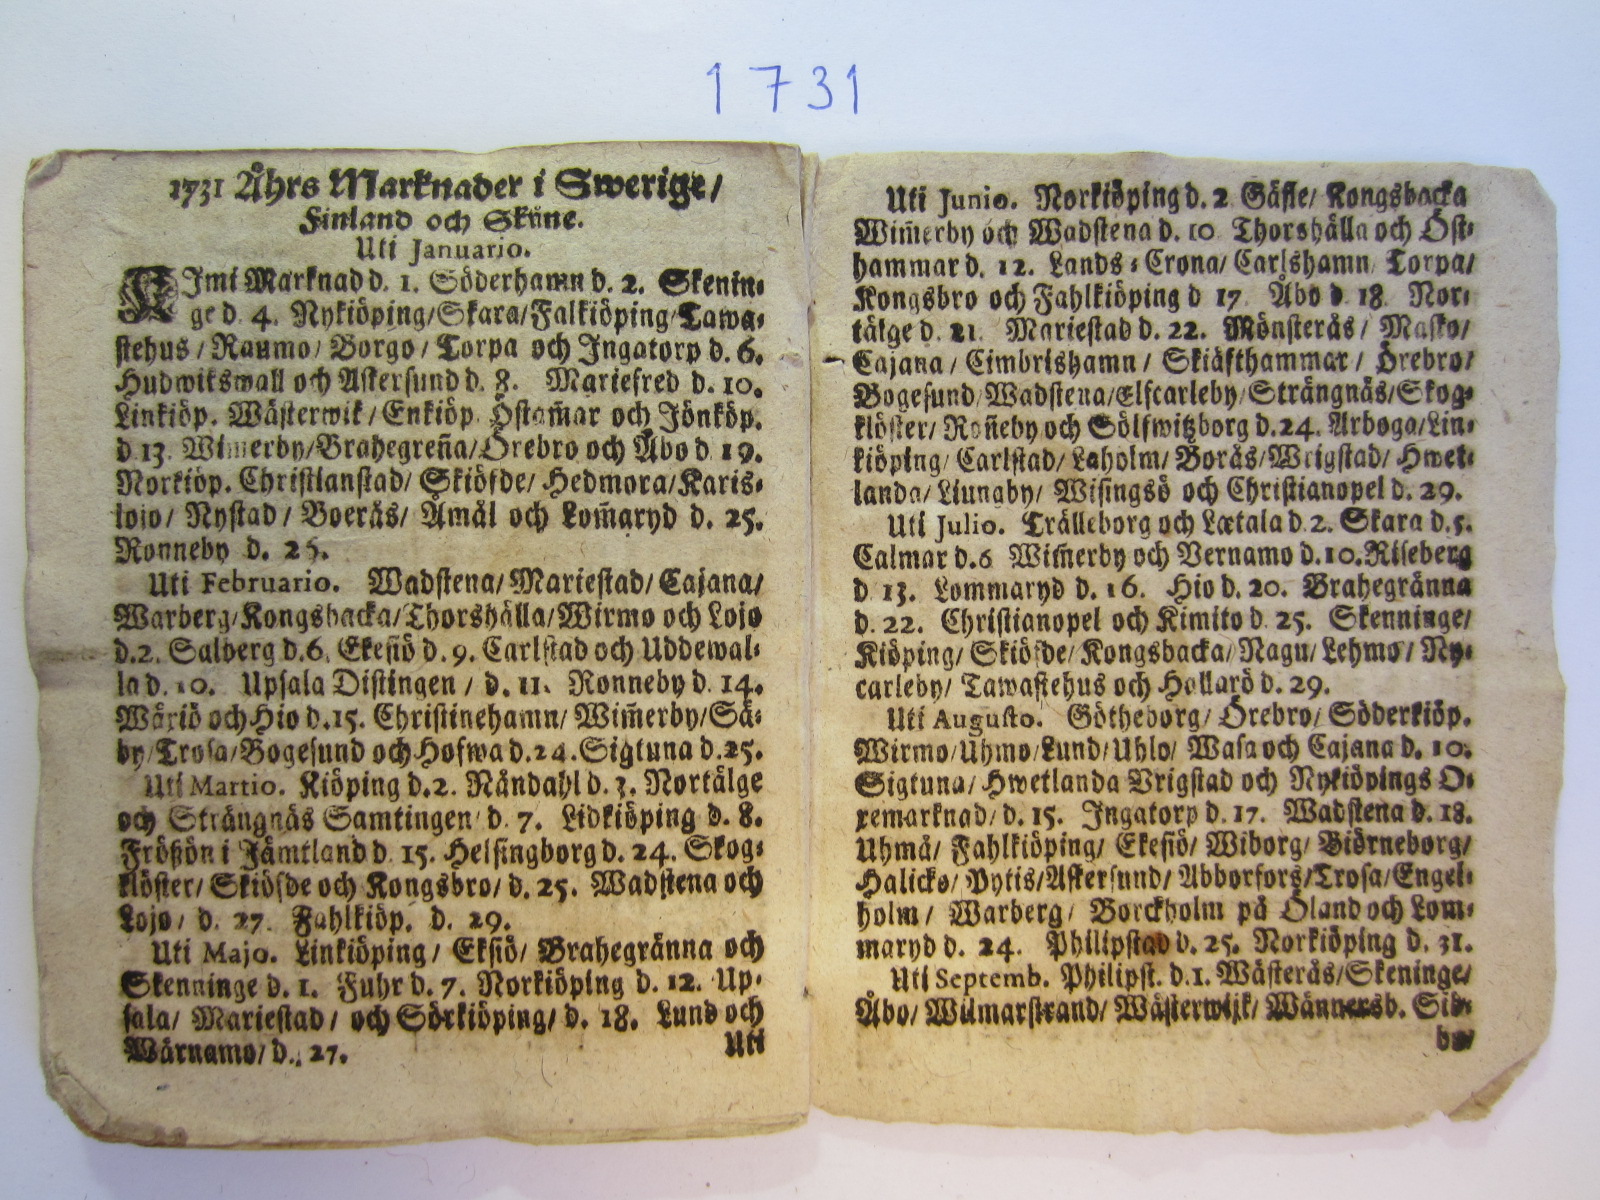 1731
1731 Åhrs Marknader i Swerige/
Finland och Skåne.
Uti Januario.
KImi Marknad d. 1. Söderhamn d. 2. Skenin⸗
ge d. 4. Nykiöping/Skara/Falkiöping/Tawa⸗
stehus/ Raumo/ Borgo/ Torpa och Ingatorp d. 6.
Hudwikswall och Askersund d. 8. Mariefred d. 10.
Linkiöp. Wästerwik/Enkiöp. Östam̃ar och Jönköp.
d 13. Wimerby/Brahegreña/Örebro och Åbo d 19.
Norkiöp. Christianstad/ Skiöfde/ Hedmora/Karis⸗
lojo/ Nystad/ Boerås/ Åmål och Lom̃aryd d. 25.
Ronneby d. 25.
Uti Februario. Wadstena/Mariestad/Cajana/
Warberg/Kongsbacka/Thorshälla/Wirmo och Lojo
d.2. Salberg d.6. Ekesiö d.9. Carlstad och Uddewal⸗
la d. 10. Upsala Distingen/ d. 11. Ronneby d. 14.
Wäxiö och Hio d.15. Christinehamn/Wim̃erby/Sä⸗
by/Trosa/Bogesund och Hofwa d.24.Sigtuna d.25.
Uti Martio. Kiöping d.2. Nåndahl d. 3. Nortälge
och Strängnäs Samtingen d. 7. Lidkiöping d. 8.
Frößön i Jämtland d 15. Helsingborg d. 24. Skog⸗
klöster/ Skiöfde och Kongsbro/ d. 25. Wadstena och
Lojo/ d. 27. Fahlkiöp. d. 29.
Uti Majo. Linkiöping/ Eksiö/ Brahegränna och
Skenninge d. 1. Fuhr d. 7. Norkiöping d. 12. Up⸗
sala/ Mariestad/ och Sörkiöping/ d. 18. Lund och
Wärnamo/ d. 27.
Uti
Uti Junio. Norkiöping d. 2 Gäfle/ Kongsbacka
Wim̃erby och Wadstena d. 10 Thorshälla och Öst⸗
hammar d. 12. Lands⸗Crona/ Carlshamn/ Torpa/
Kongsbro och Fahlkiöping d 17. Åbo d. 18. Nor⸗
tälge d. 21. Mariestad d. 22. Mönsterås/ Masko/
Cajana/ Cimbrishamn/ Skiäfthammar/ Örebro/
Bogesund/Wadstena/Elfcarleby/Strängnäs/Skog⸗
klöster/ Roñeby och Sölfwitzborg d.24. Arboga/Lin⸗
kiöping/ Carlstad/ Laholm/ Borås/Wrigstad/ Hwet⸗
landa/ Liungby/ Wisingsö och Christianopel d. 29.
Uti Julio. Trälleborg och Lætala d 2. Skara d.5.
Calmar d.6 Wim̃erby och Vernamo d.10.Riseberg
d 13. Lommaryd d. 16. Hio d. 20. Brahegränna
d. 22. Christianopel och Kimito d 25. Skenninge/
Kiöping/ Skiöfde/Kongsbacka/Nagu/Lehmo/ Ny⸗
carleby/ Tawastehus och Hollarö d. 29.
Uti Augusto. Götheborg/ Örebro/ Söderkiöp.
Wirmo/Uhmo/Lund/Uhlo/ Wasa och Cajana d. 10.
Sigtuna/ Hwetlanda Vrigstad och Nykiöpings O⸗
xemarknad/ d. 15. Ingatorp d. 17. Wadstena d. 18.
Uhmå/ Fahlkiöping/ Ekesiö/ Wiborg/ Biörneborg/
Halicko/ Pytis/Askersund/ Abborfors/Trosa/Engel⸗
holm/ Warberg/ Borckholm på Öland och Lom⸗
maryd d. 24. Philipstad d. 25. Norkiöping d. 31.
Uti Septemb. Philipst. d.1. Wästerås/Skeninge/
Åbo/ Wilmarstrand/ Wästerwijk/ Wännersb. Sib⸗
bo/